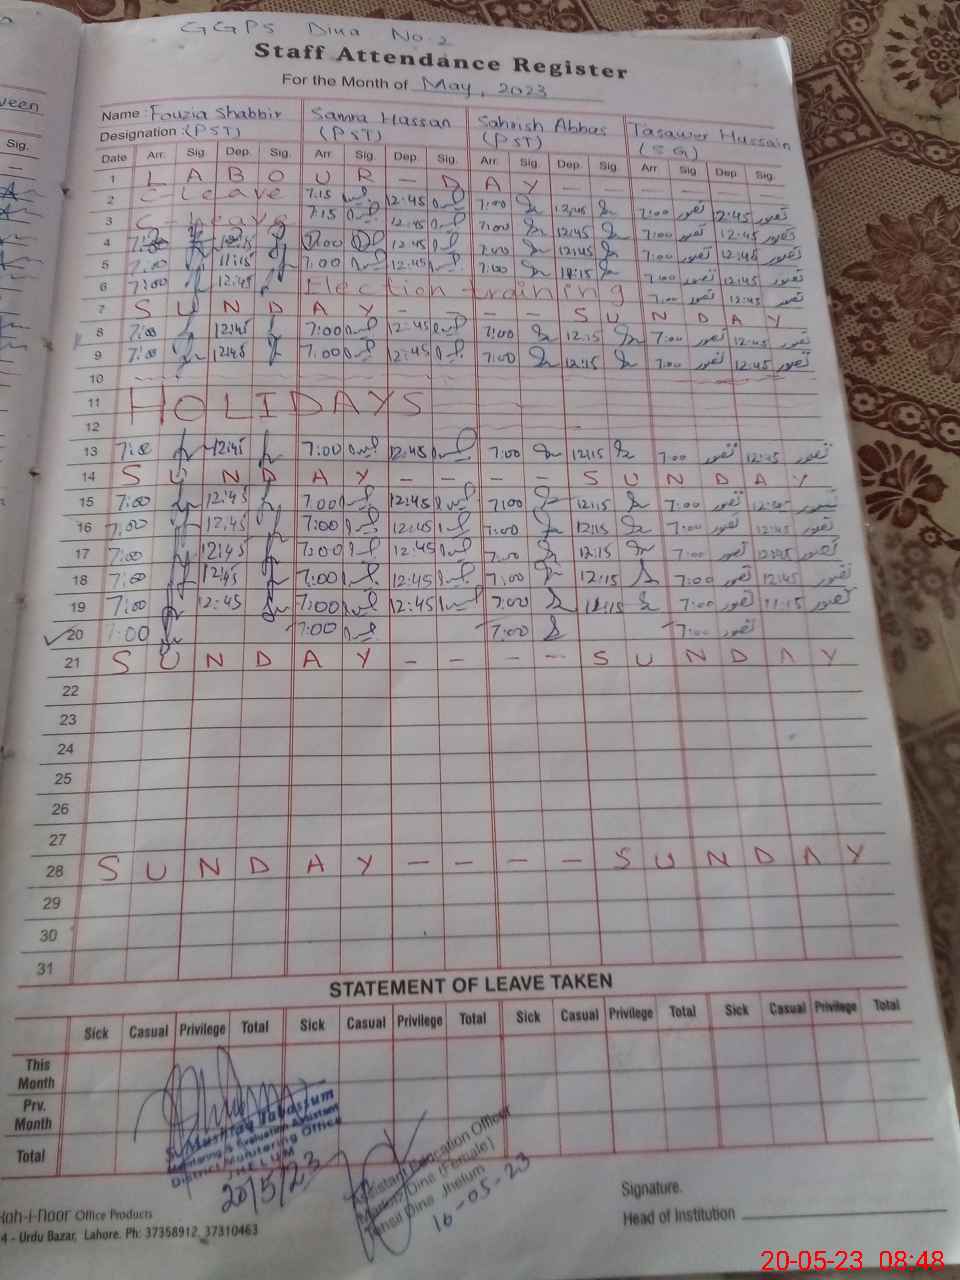 GGPS Dina No.2
Staff Attendance Register
For the Month of May, 2023
Name: Fouzia Shabbir Samra Hassan Sahrish Abbas Tasawer Hussain
Designation: (PST) (PST) (PST) (SG)
Date Arr. Sig. Dep. Sig. Arr. Sig. Dep. Sig. Arr. Sig. Dep. Sig. Arr. Sig Dep. Sig.
1 L A B O U R - D A Y - - - - - -
2 C-leave 7:15 12:45 7:00 12:45 7:00 تصور 12:45 تصور
3 C-leave 7:15 12:45 7:00 12:45 7:00 تصور 12:45 تصور
4 7:00 12:45 7:00 12:45 7:00 تصور 12:45 تصور
5 7:00 11:15 7:00 12:45 7:00 7:00 تصور 12:45 تصور
6 7:00 12:45 Election training 7:00 تصور 12:45 تصور
7 S U N D A Y - - - - S U N D A Y
8 7:00 12:45 7:00 12:45 7:00 12:15 7:00 تصور 12:45 تصور
9 7:00 12:45 7:00 12:45 7:00 12:15 7:00 تصور 12:45 تصور
10
11 HOLIDAYS
12
13 7:00 12:45 7:00 12:45 7:00 12:15 7:00 تصور 12:45 تصور
14 S U N D A Y - - - - S U N D A Y
15 7:00 12:45 7:00 12:45 7:00 12:15 7:00 تصور 12:45 تصور
16 7:00 12:45 7:00 12:45 7:00 12:15 7:00 تصور 12:45 تصور
17 7:00 12:45 7:00 12:45 7:00 12:15 7:00 تصور 12:45 تصور
18 7:00 12:45 7:00 12:45 7:00 12:15 7:00 تصور 12:45 تصور
19 7:00 12:45 7:00 12:45 7:00 11:15 7:00 تصور 11:15 تصور
20 7:00 7:00 7:00 7:00 تصور
21 S U N D A Y - - - - S U N D A Y
22
23
24
25
26
27
28 S U N D A Y - - - - S U N D A Y
29
30
31
STATEMENT OF LEAVE TAKEN
Sick Casual Privilege Total Sick Casual Privilege Total Sick Casual Privilege Total Sick Casual Privilege Total
This Month
Prv. Month
Total
Monitoring & Evaluation Assistant
District Monitoring Office
JHELUM
20/5/23
Assistant Education Officer
Markaz Dina (Female)
Tehsil Dina Jhelum
16-05-23
Signature.
Head of Institution
Koh-i-Noor Office Products
4 - Urdu Bazar, Lahore. Ph: 37358912, 37310463
20-05-23 08:48